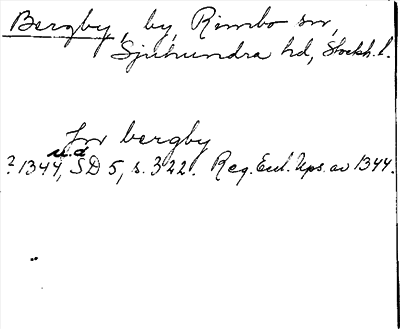 Bergby, by, Rimbo sn,
Sjuhundra hd, Stockh. l.
In bergby
u.d
? 1344, SD 5, s. 322. Reg. Eccl. Ups. av 1344.